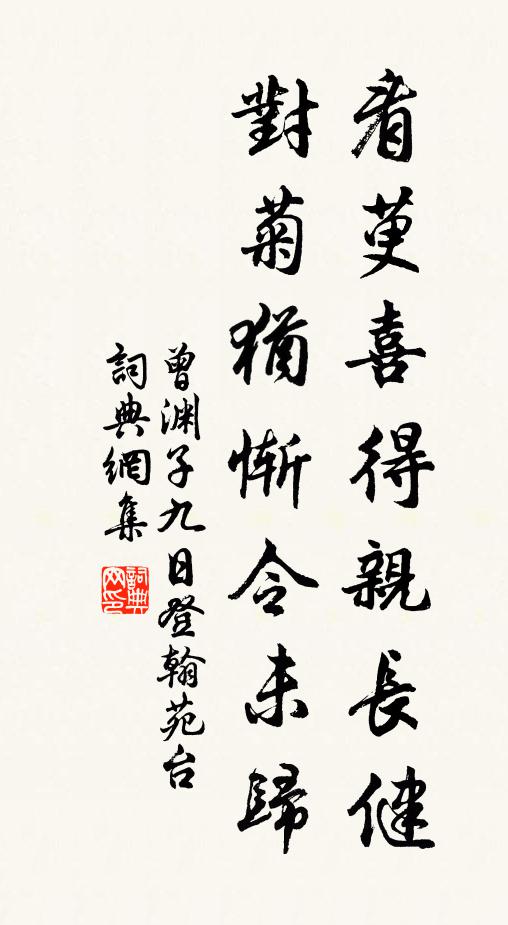 看萸喜得親長健
對菊猶慚令未歸
曾渊子九日登翰苑台
詞典網集
詞典网印